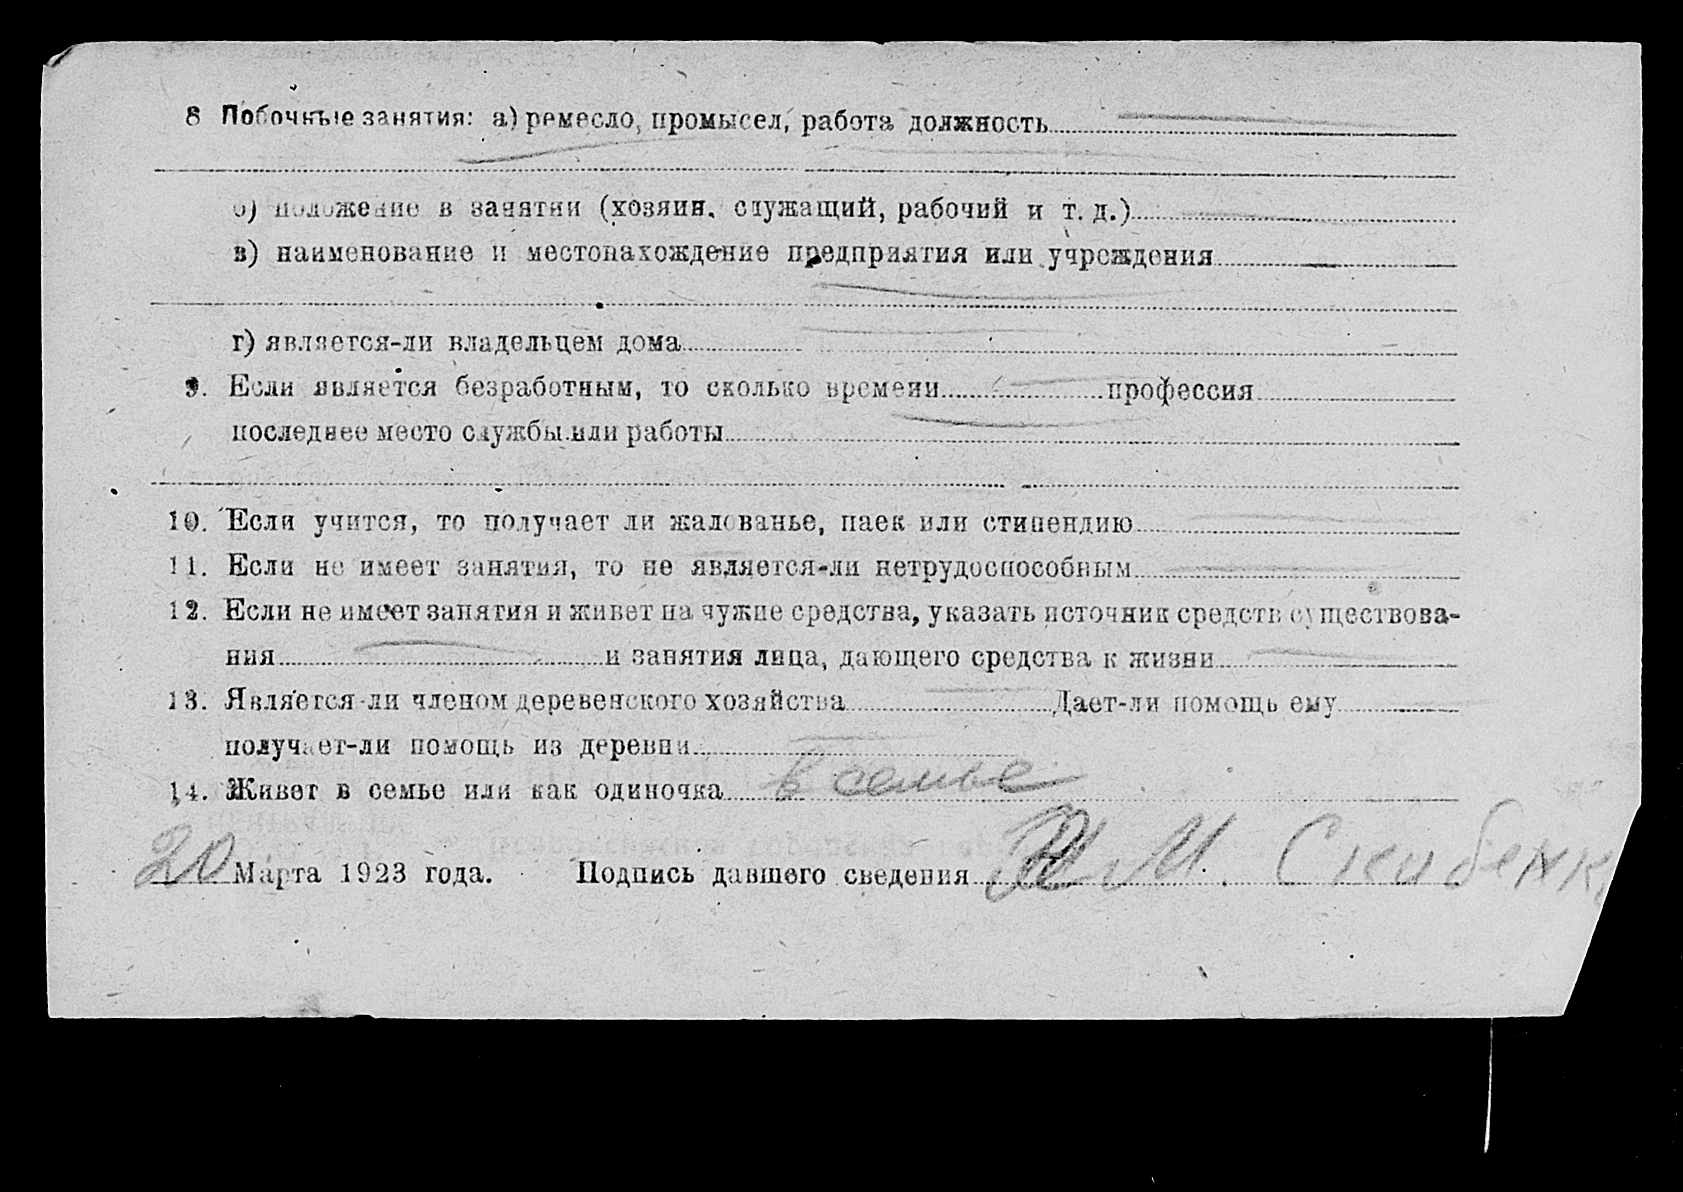 8 Побочные занятия: а) ремесло, промысел, работа должность
б) положение в занятии (хозяин, служащий, рабочий и т. д.)
в) наименование и местонахождение предприятия или учреждения
г) является-ли владельцем дома
9. Если является безработным, то сколько времени профессия
последнее место службы или работы
10. Если учится, то получает ли жалованье, паек или стипендию
11. Если не имеет занятия, то не является-ли нетрудоспособным
12. Если не имеет занятия и живет на чужие средства, указать источник средств существова-
ния и занятия лица, дающего средства к жизни
13. Является-ли членом деревенского хозяйства Дает-ли помощь ему
получает-ли помощь из деревни
14. Живет в семье или как одиночка в семье
20 Марта 1923 года. Подпись давшего сведения М. Скибенк